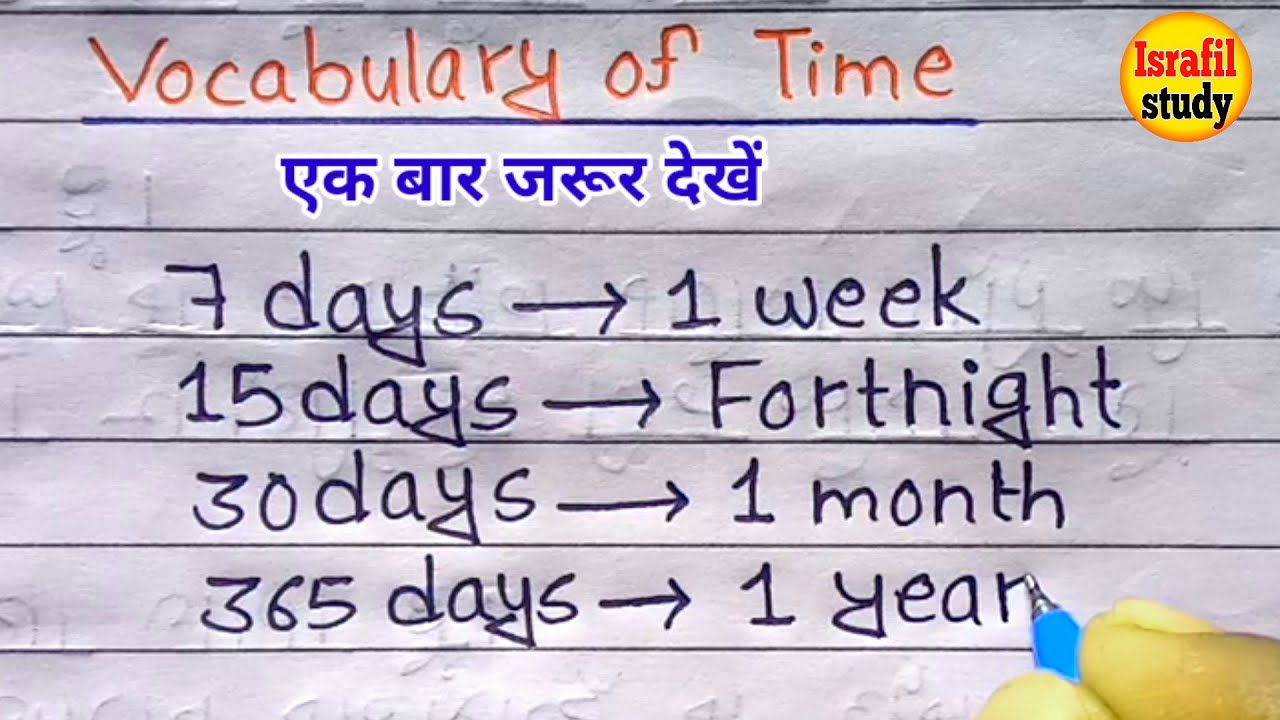 Vocabulary of Time
Israfil
study
एक बार जरूर देखें
7 days → 1 week
15 days → Fortnight
30 days → 1 month
365 days → 1 year